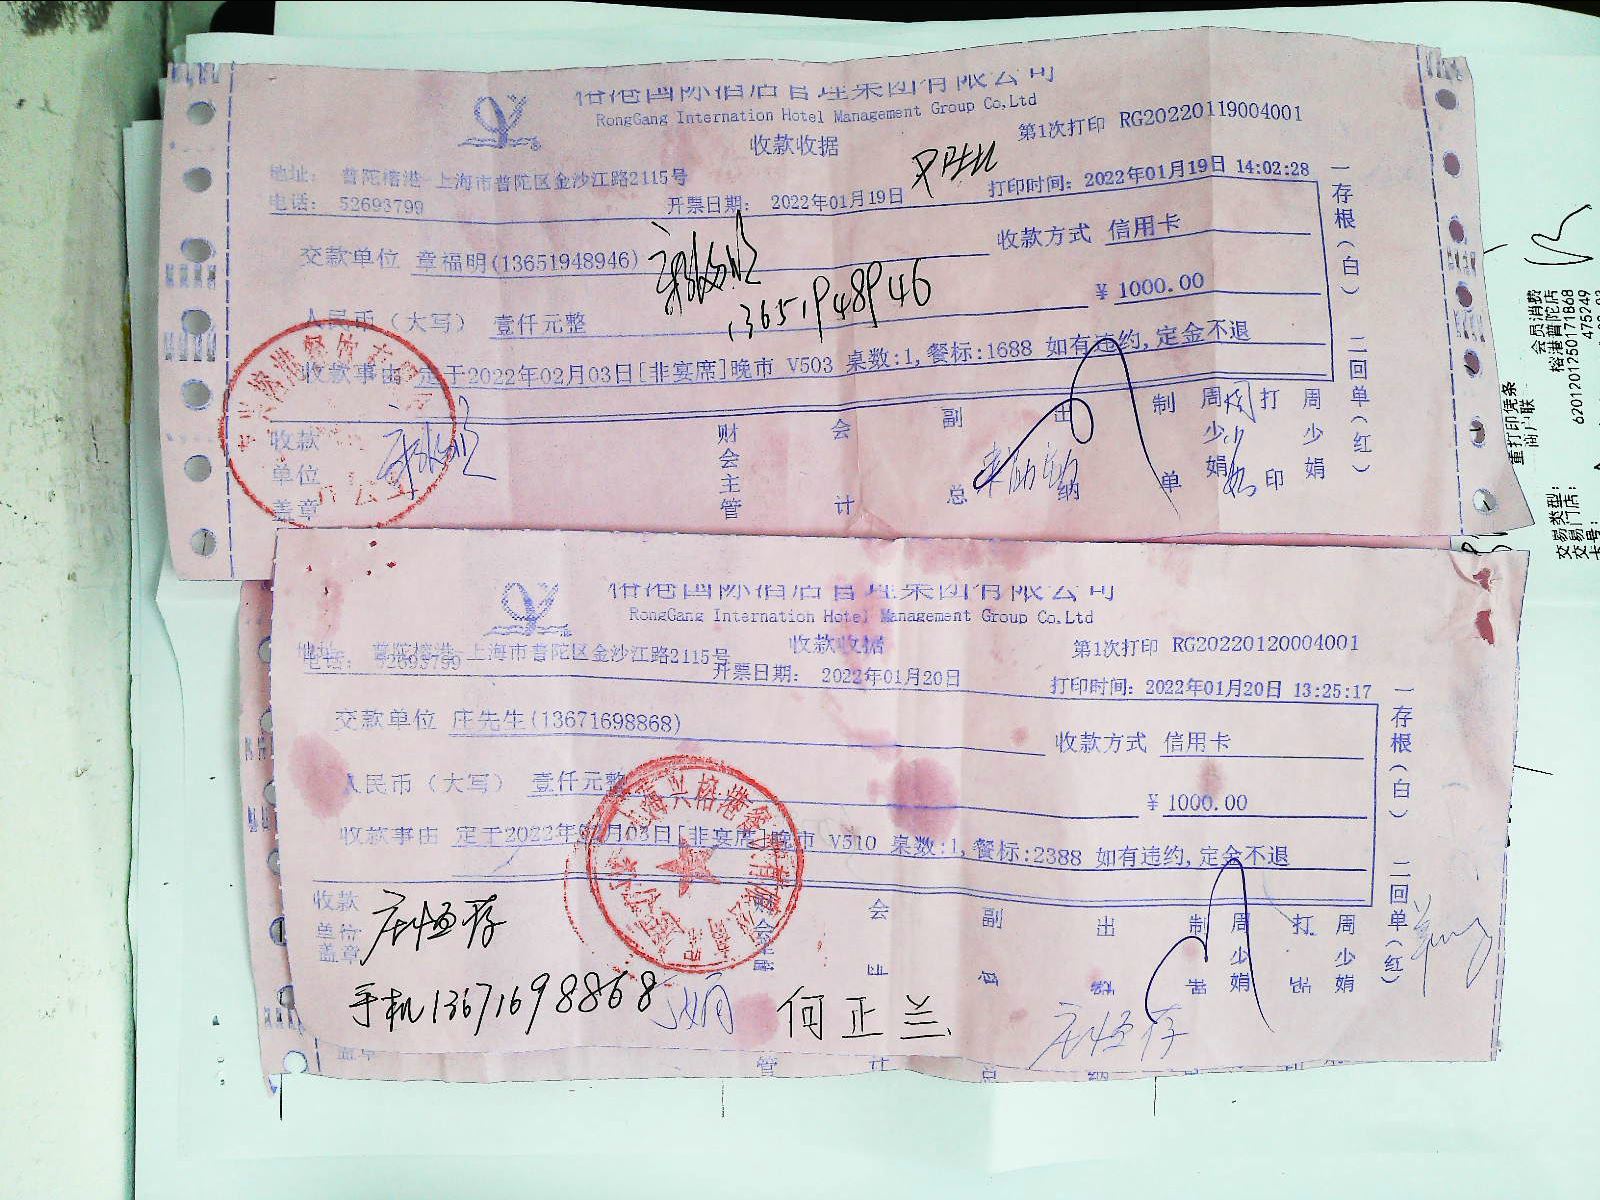 榕港国际酒店管理集团有限公司
RongGang Internation Hotel Management Group Co,Ltd
收款收据
第1次打印 RG20220119004001
地址: 普陀榕港-上海市普陀区金沙江路2115号
电话: 52693799
开票日期: 2022年01月19日
打印时间: 2022年01月19日 14:02:28
交款单位 章福明(13651948946)
收款方式 信用卡
13651948946
人民币（大写） 壹仟元整
￥ 1000.00
收款事由 定于2022年02月03日[非宴席]晚市 V503 桌数:1,餐标:1688 如有违约,定金不退
收款单位盖章
财会主管
会计
副总
出纳
制单
周少娟
打印
周少娟
一存根(白) 二回单(红)
榕港国际酒店管理集团有限公司
RongGang Internation Hotel Management Group Co,Ltd
收款收据
第1次打印 RG20220120004001
地址: 普陀榕港-上海市普陀区金沙江路2115号
电话: 52693799
开票日期: 2022年01月20日
打印时间: 2022年01月20日 13:25:17
交款单位 庄先生(13671698868)
收款方式 信用卡
人民币（大写） 壹仟元整
￥ 1000.00
收款事由 定于2022年02月03日[非宴席]晚市 V510 桌数:1,餐标:2388 如有违约,定金不退
收款单位盖章
会
副
出
制
周少娟
打
周少娟
一存根(白) 二回单(红)
庄恒存
手机13671698868
何正兰
庄恒存
盖章
管
计
总
纳
重打印凭条
商户联
交易类型: 会员消费
交易门店: 榕港普陀店
卡号: 6201201250171868
475249